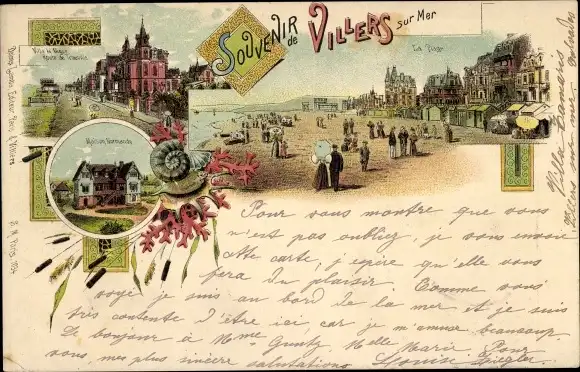 SOUVENIR de VILLERS sur Mer
Villa le
Route de Trouville
La Plage
Maison Normande
Pour vous montre que vous
n'est pas oubliez, je vous envoie
cette carte, j'espire qu'elle vous
fera du plaisir. Comme vous
voye je suis au bord de la mer et je suis
très contente d'être ici, car je m'amuse beaucoup.
bonjour à Mme Guntz, Melle Marie. Pour
vous, mes plus sincère salutations Louise Spiegler
Villa
Villers sur mer, Calvados